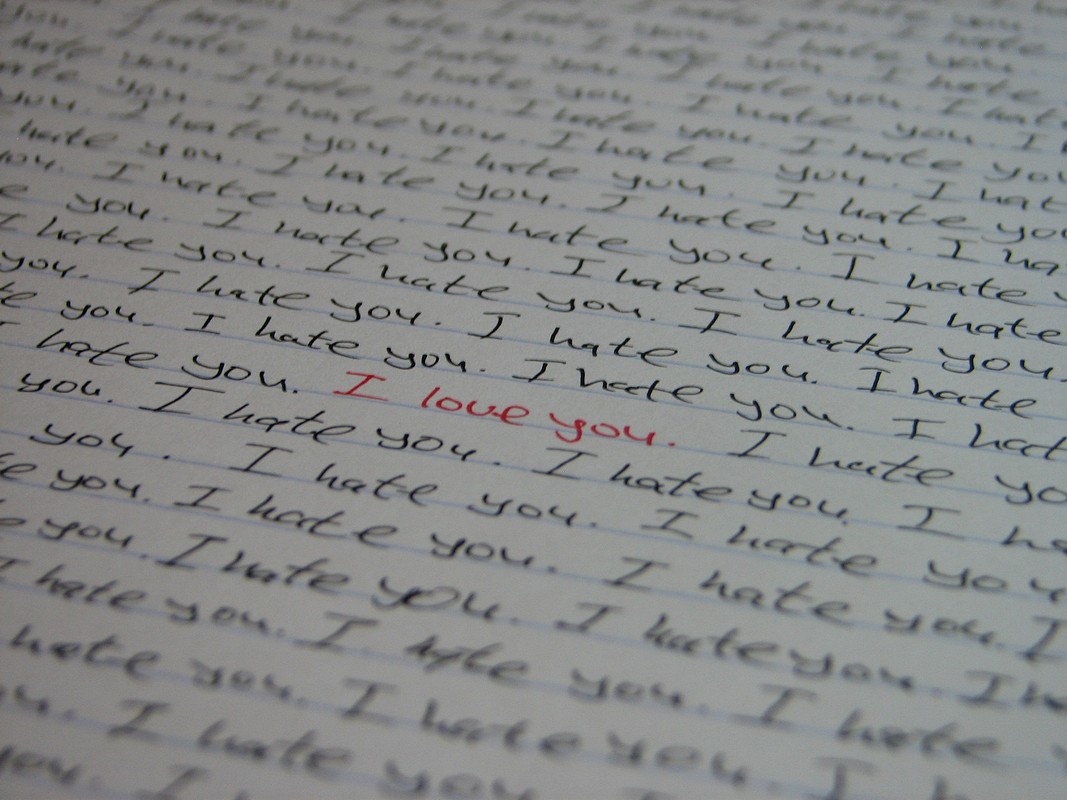 you. I hate you. I hate you. I hate you. I
hate you. I hate you. I hate you. I hate yo
ate you. I hate you. I hate you. I hat
you. I hate you. I hate you. I hate you
hate you. I hate you. I hate you. I ha
you. I hate you. I hate you. I hate y
e you. I hate you. I hate you. I hate
I hate you. I hate you. I hate you.
you. I hate you. I hate you. I hate
te you. I hate you. I hate you. I hat
I hate you. I love you. I hate yo
you. I hate you. I hate you. I ha
you. I hate you. I hate you
te you. I hate you. I hate you. I
e you. I hate you. I hate you. I h
I hate you. I hate you. I hate y
hate you. I hate you. I h
u. I hate you
you. I